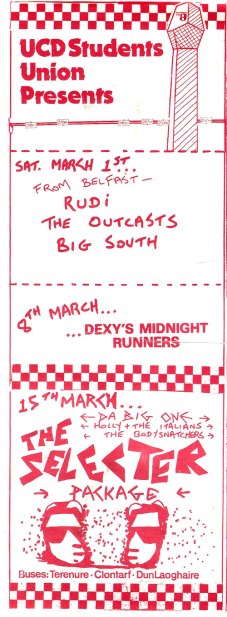 UCD Students
Union
Presents
SAT. MARCH 1ST...
FROM BELFAST —
RUDI
THE OUTCASTS
BIG SOUTH
8TH MARCH...
...DEXY'S MIDNIGHT
RUNNERS
15TH MARCH...
← DA BIG ONE →
← HOLLY + THE ITALIANS →
← THE BODYSNATCHERS →
THE
SELECTER
→ PACKAGE ←
Buses: Terenure · Clontarf · DunLaoghaire